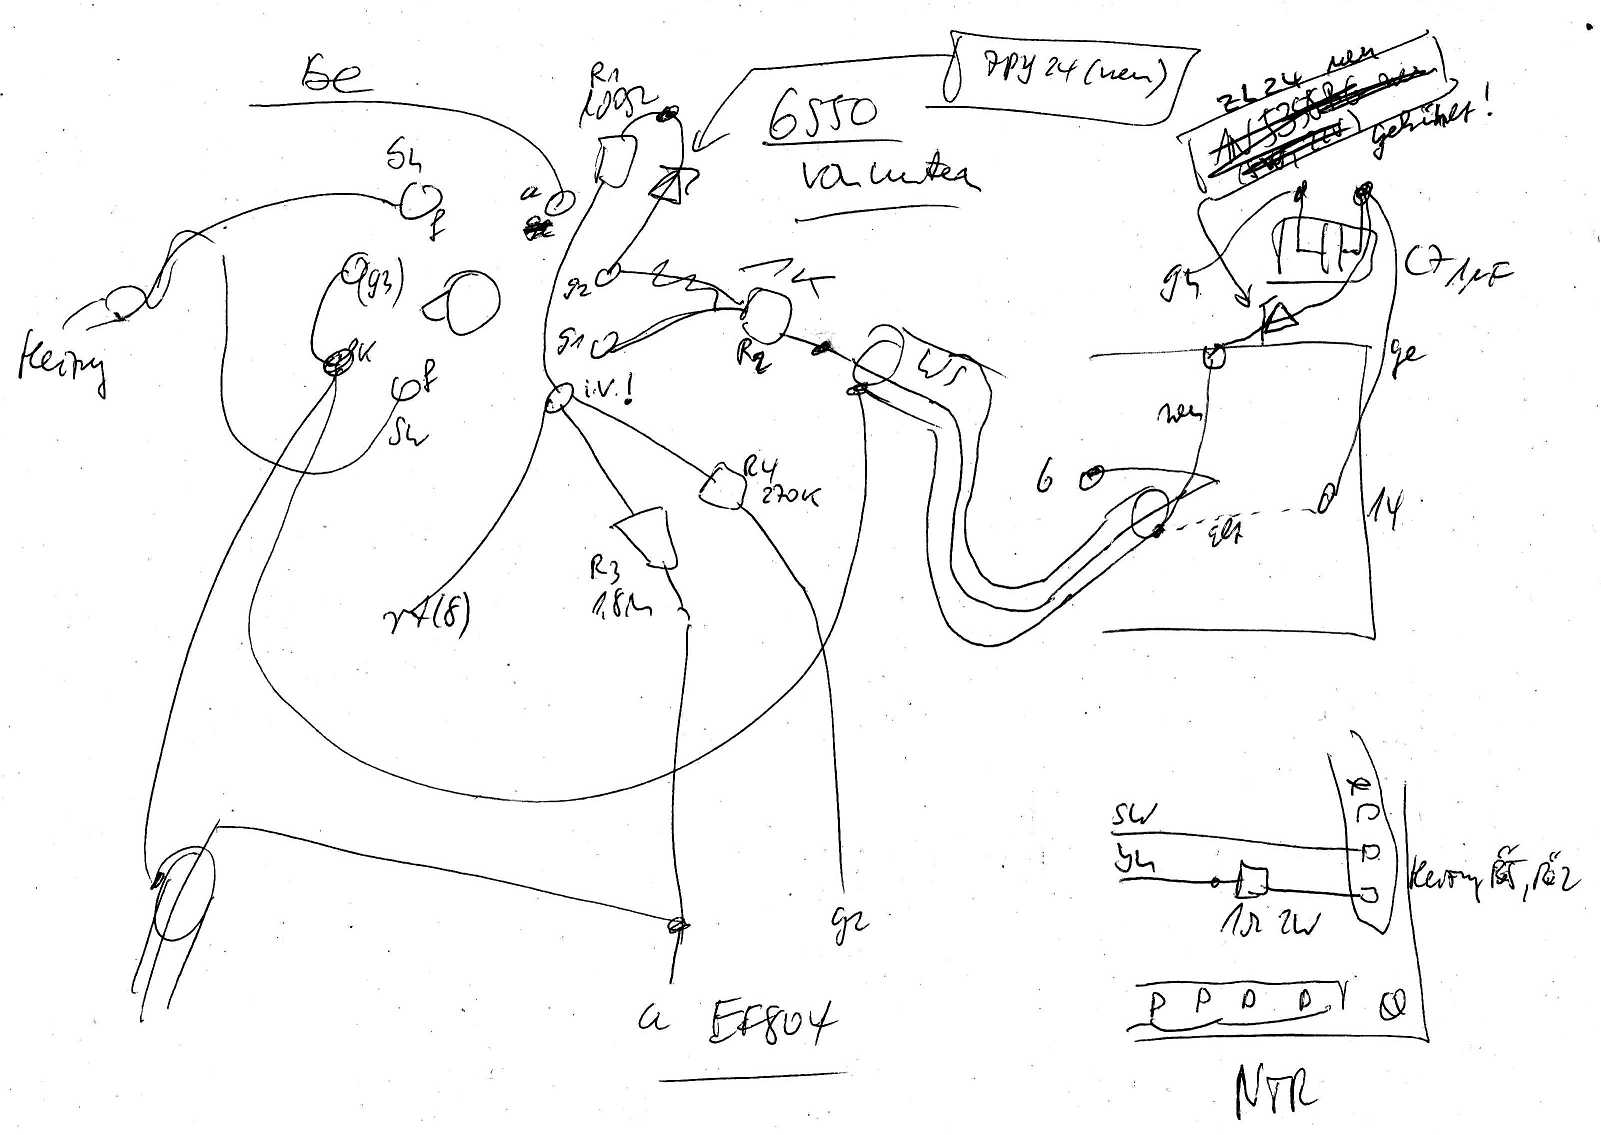 R1
100Ω
ZPY 24 (neu)
6550
von unten
ZL 24 neu
gekühlt!
Sh
f
a
(g3)
K
f
SW
g2
g1
R2
i.V.!
WS
gn
C7 1µF
ge
neu
6
14
Heizung
R4
270K
R3
1,8M
rt(8)
g2
a EF804
SW
gn
1Ω 2W
Heizung Rö5, Rö2
NTR